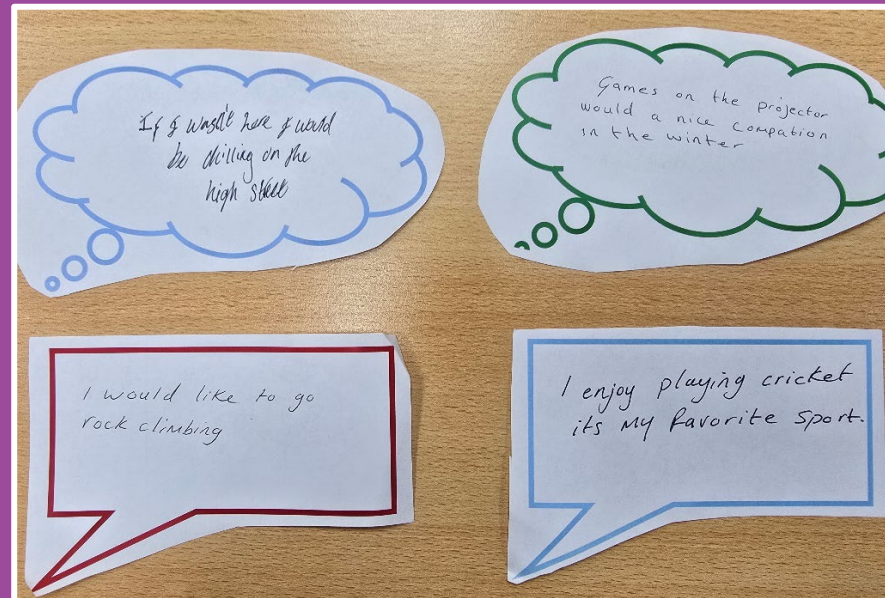 If I wasn't here I would
be chilling on the
high street
Games on the projector
would a nice compation
in the winter
I would like to go
rock climbing
I enjoy playing cricket
its my favorite sport.